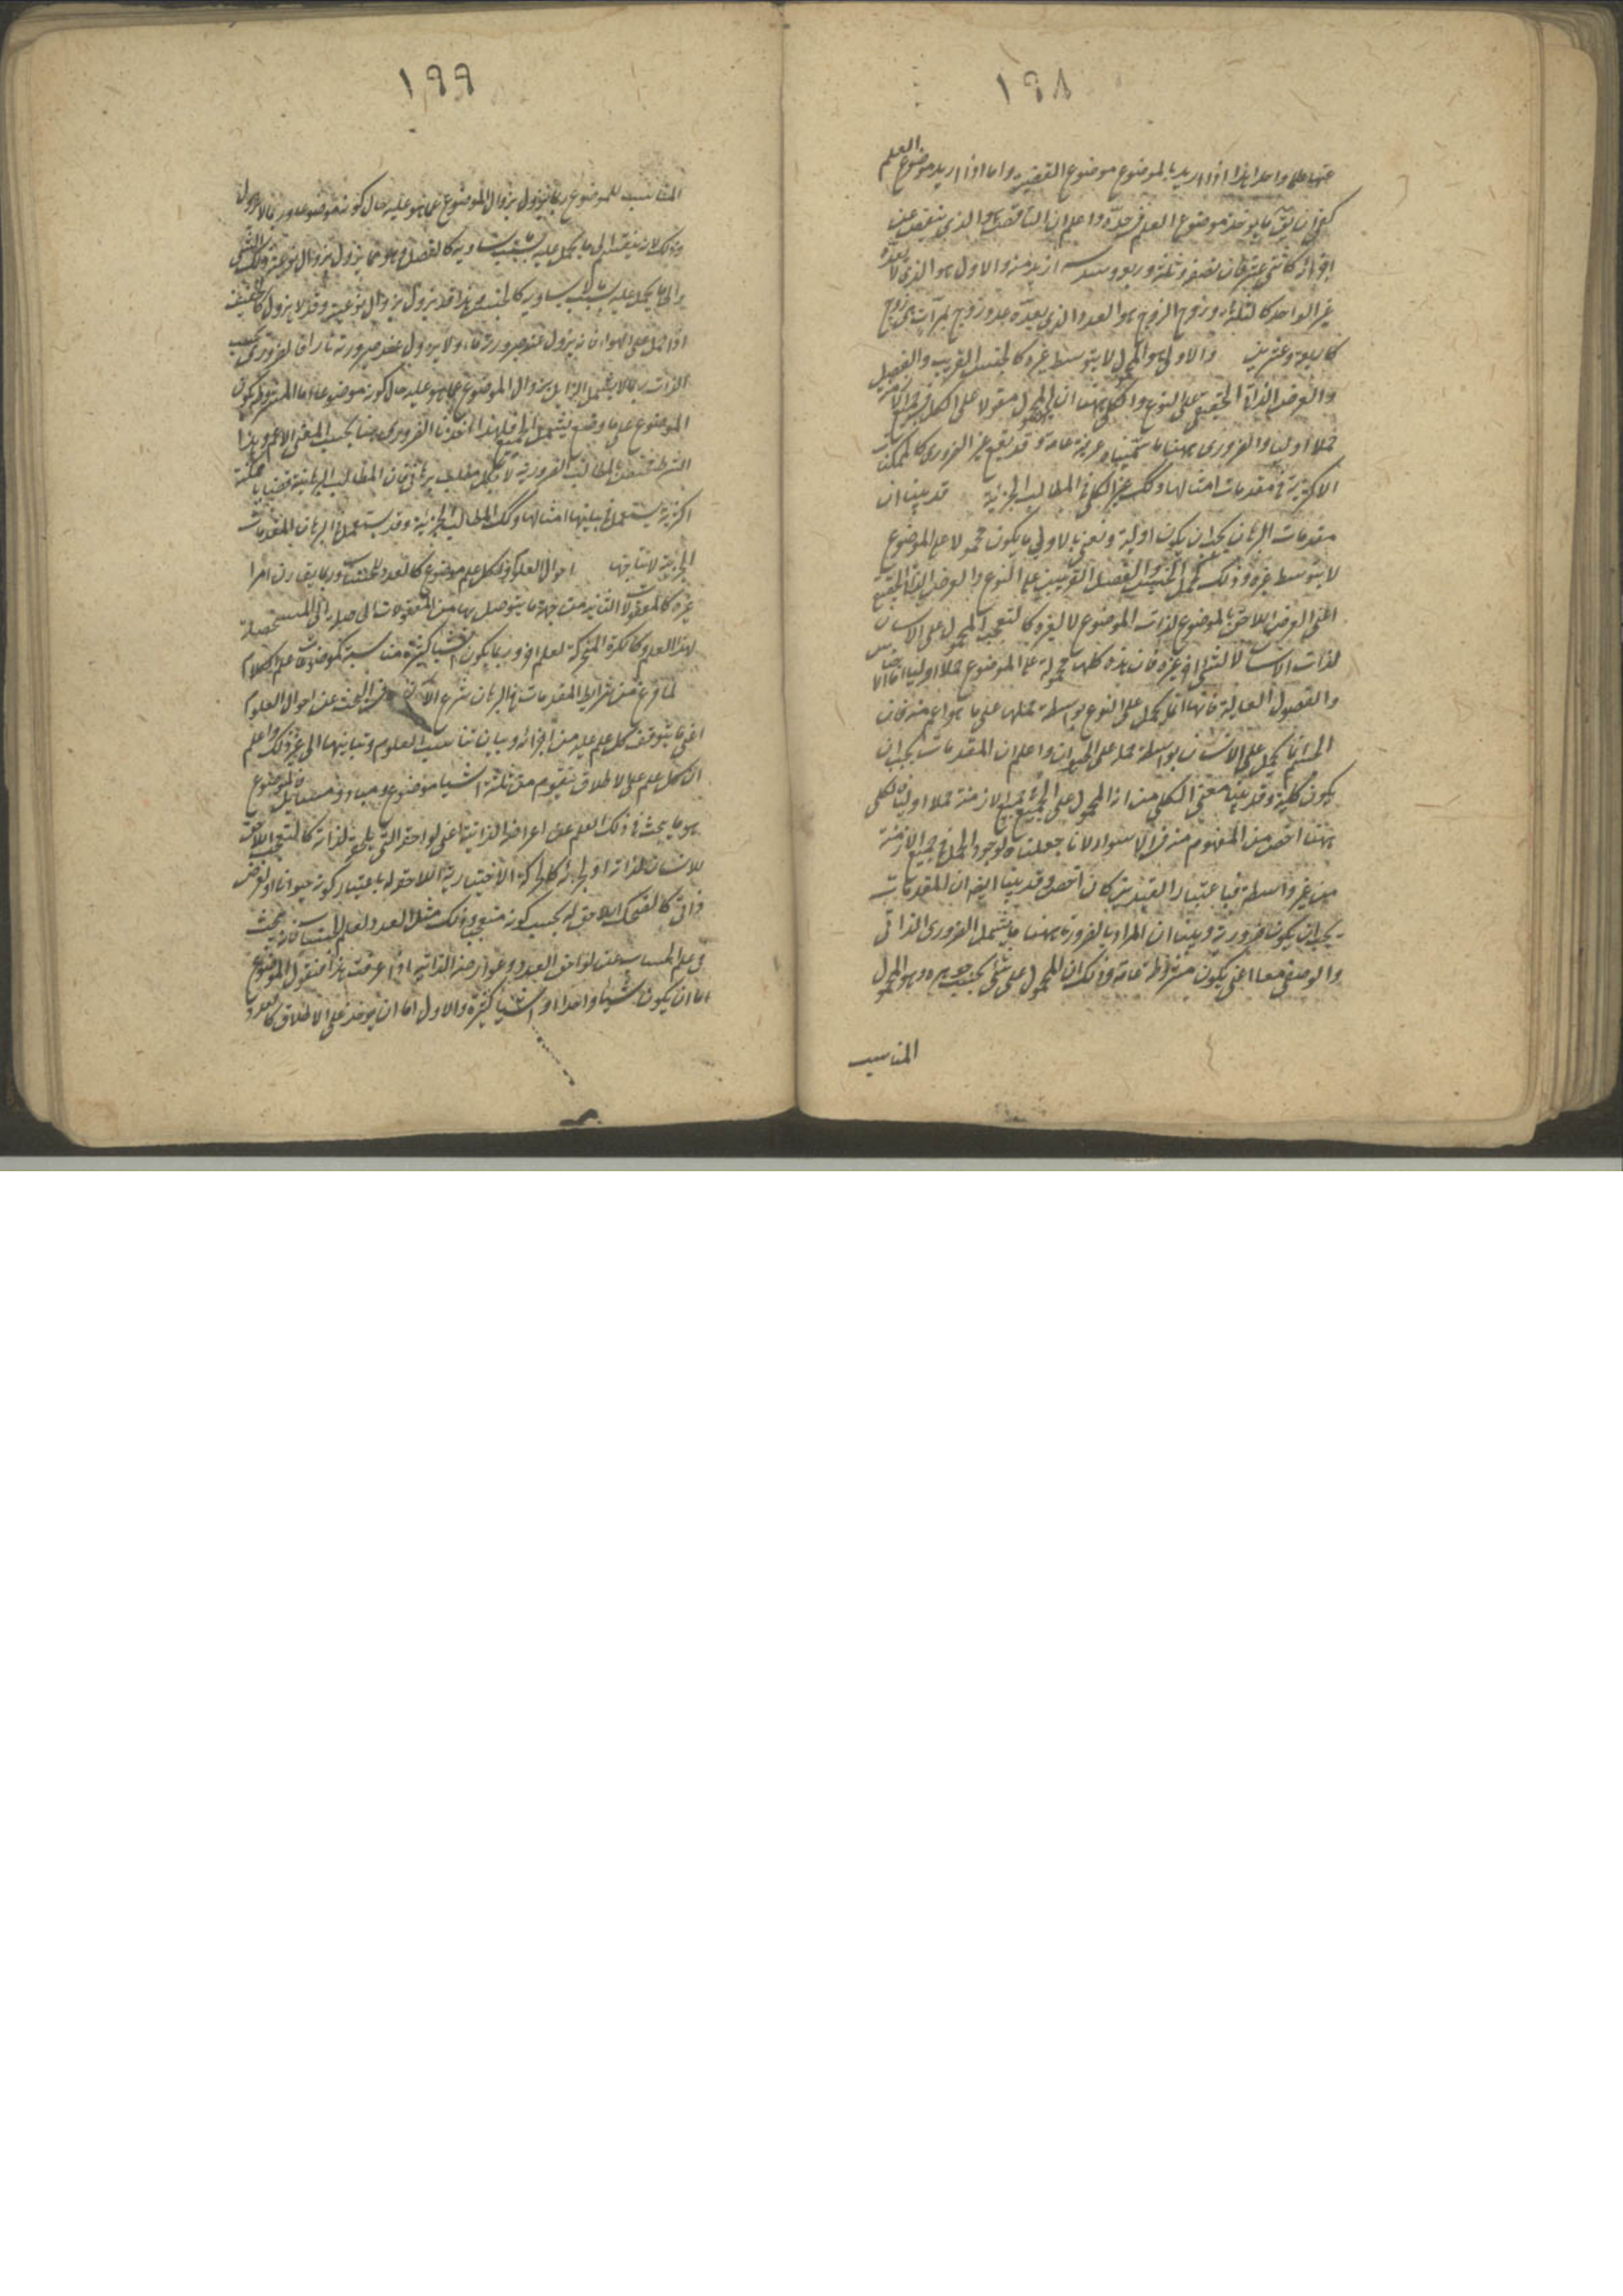 ١٩٨
العلم
عنها على واحد هذا اذا اريد بالموضوع موضوع القضية واما اذا اريد موضوع
ما يوخذ موضوع العلم في حده واعلم ان الناقص هو الذي ينقص عن
فان نصفه وثلثه وربعه وسدسه ازيد منه والاول هو الذي لا يعده
غير الواحد كالثلثة وزوج الزوج هو العدد الذي يعده عدد زوج مرات هي زوج
كاربعة وعشرين والاولى هو المحمول لا بتوسط غيره كالجنس القريب والفصل
والعرض الذاتي الحقيقي على النوع والكلي ههنا ان يكون المحمول مقولا على الكل في جميع الازمنة
حملا اوليا والضروري ههنا عرفية عامة وقد يقع غير الضروري كالممكنات
الاكثرية في مقدمات امثالها وكذلك غير الكلي في المطالب الجزئية قد بينا ان
مقدمات البرهان يجب ان يكون اولية ونعني بالاولي ما يكون محمولا على الموضوع
لا بتوسط غيره وذلك كحمل الجنس والفصل القريبين على النوع والعرض الذاتي الحقيقي
اعني العرض اللاحق بالموضوع لذات الموضوع لا لغيره كالتعجب المحمول على الانسان
لذات الانسان لا لشيء اخر غيره فان هذه كلها محمولة على الموضوع حملا اوليا اما الاجناس
والفصول العالية فانها انما تحمل على النوع بواسطة حملها على ما هو اعم منه فان
الجسم انما يحمل على الانسان بواسطة حمله على الحيوان واعلم ان المقدمات يجب ان
يكون كلية وقد بينا معنى الكلي من ان المحمول على الجميع في جميع الازمنة حملا اوليا فالكلي
ههنا اخص من المفهوم منه في الاسوار لانا جعلناه لوجود الحمل في جميع الازمنة
من غير واسطة فباعتبار القيدين كان اخص وقد بينا ايضا ان المقدمات
يجب ان يكون ضرورية وبينا ان المراد بالضرورة ههنا ما يشمل الضروري الذاتي
والوصفي معا اعني يكون مشروطة عامة وذلك ان المحمول على شيء بحسب جوهره وهو المحمول
المناسب
١٩٩
المناسب للموضوع ربما يزول بزوال الموضوع عما هو عليه حال كونه موضوعا وربما لا يزول
وذلك لانه ينقسم الى ما يحمل عليه بسبب يساويه كالفصل وهو مما يزول بزوال نوعيته
والى ما يحمل عليه بسبب لا يساويه كالجنس وهذا قد يزول بزوال نوعيته وقد لا يزول كالخفيف
اذا حمل على الهواء فانه يزول عند صيرورته ماء ولا يزول عند صيرورته نارا فالضروري بحسب
الذات ربما لا يشمل الزايل بزوال الموضوع عما هو عليه حال كونه موضوعا اما المشروط بكون
الموضوع على ما وضع يشمل الجميع فلهذا اخذنا الضروري ههنا بحسب المعنى الاعم وهذا
الشرط يختص بالمطالب الضرورية لا بكل مطلب برهاني فان المطالب البرهانية قضايا ممكنة
اكثرية يستعمل في بيانها امثالها وكذلك المطالب الجزئية وقد يستعمل في البرهان المقدمات
الجزئية لانتاجها احوال العلوم لكل علم موضوع كالعدد للحساب وربما يقارن امرا
غيره كالمعقولات الثانية من جهة ما يتوصل بها من المعقولات الى صلى الى المستحصلة
لهذا العلم وكالكرة المتحركة لعلم اخر وربما يكون اشياء كثيرة متناسبة كموضوعات علم الكلام
لما فرغ من شرايط المقدمات في البرهان شرع الان في البحث عن احوال العلوم
اعني ما يتوقف كل علم عليه من اجزائه وبيان تناسب العلوم وتباينها الى غير ذلك واعلم
ان كل علم على الاطلاق يتقوم من ثلثة اشياء موضوع ومبادي ومسايل فالموضوع
هو ما يبحث في ذلك العلم عن اعراضه الذاتية اعني لواحقه التي تلحقه لذاته كالتعجب اللاحق
للانسان لذاته او لجزئه كالحركة الاختيارية اللاحقة له باعتبار كونه حيوانا او لعرض
ذاتي كالضحك اللاحق له بحسب كونه متعجبا وذلك مثل العدد لعلم الحساب فانه يبحث
في علم الحساب عن لواحق العدد وعوارضه الذاتية اذا عرفت هذا فنقول الموضوع
اما ان يكون شيئا واحدا او اشياء كثيرة والاول اما ان يوخذ على الاطلاق كالعدد